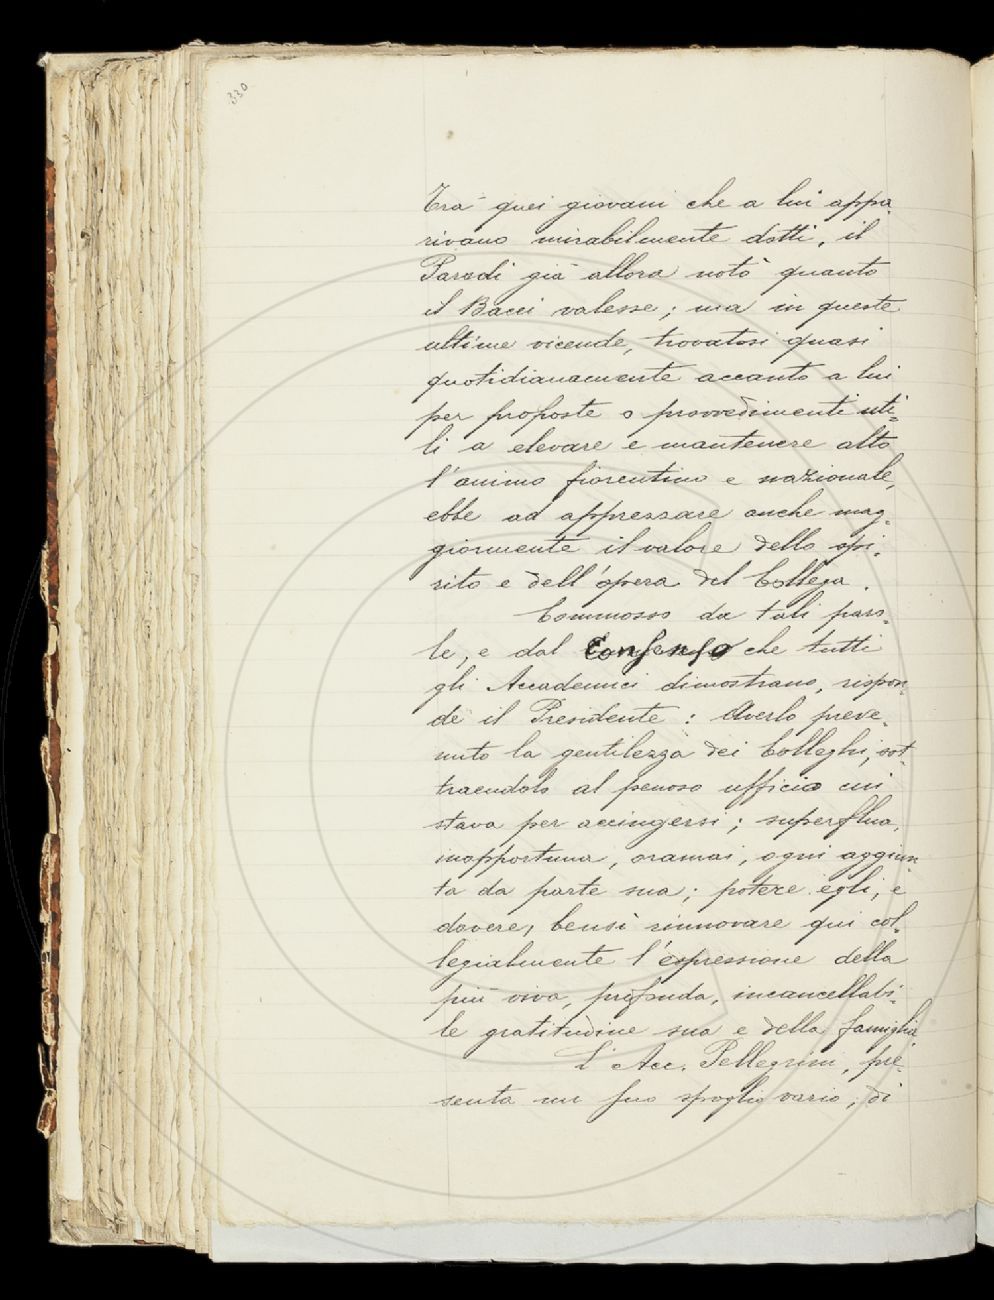 330
Tra quei giovani che a lui appa
rivano mirabilmente dotti, il
Parodi già allora notò quanto
il Bacci valesse; ma in queste
ultime vicende, trovatosi quasi
quotidianamente accanto a lui
per proposte o provvedimenti uti=
li a elevare e mantenere alto
l'animo fiorentino e nazionale,
ebbe ad apprezzare anche mag-
giormente il valore dello spi-
rito e dell'opera del Collega.
Commosso da tali paro-
le, e dal Consenso che tutti
gli Accademici dimostrano, rispon-
de il Presidente: Averlo preve-
nuto la gentilezza dei Colleghi, sot-
traendolo al penoso ufficio cui
stava per accingersi; superflua,
inopportuna, oramai, ogni aggiun-
ta da parte sua; potere egli, e
dovere, bensì rinnovare qui col-
legialmente l'espressione della
più viva, profonda, incancellabi-
le gratitudine sua e della famiglia.
L'Acc. Pellegrini, pre-
senta un suo spoglio vario, di